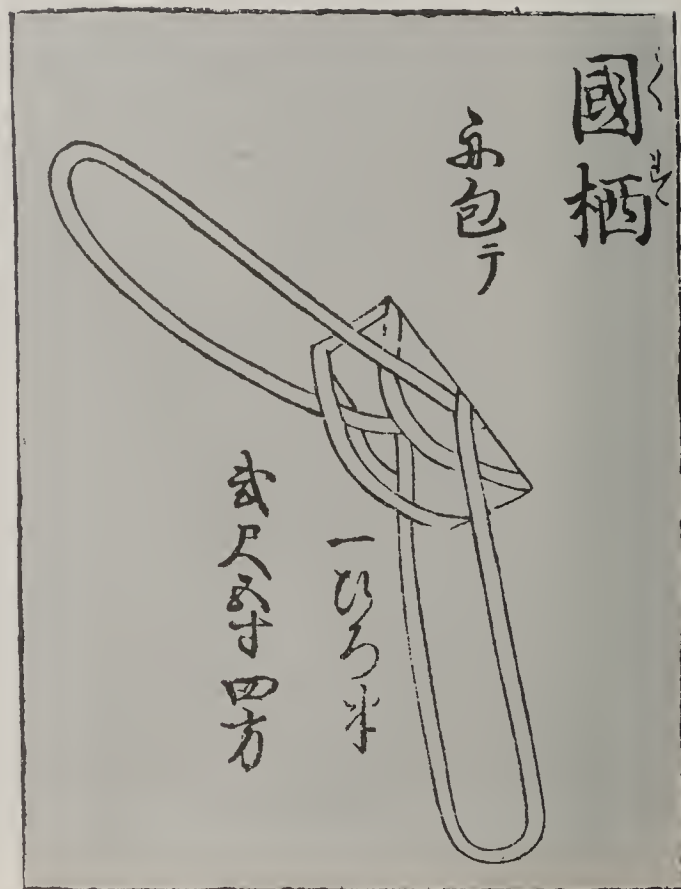 國栖
包テ
一ひろ半
弐尺五寸四方